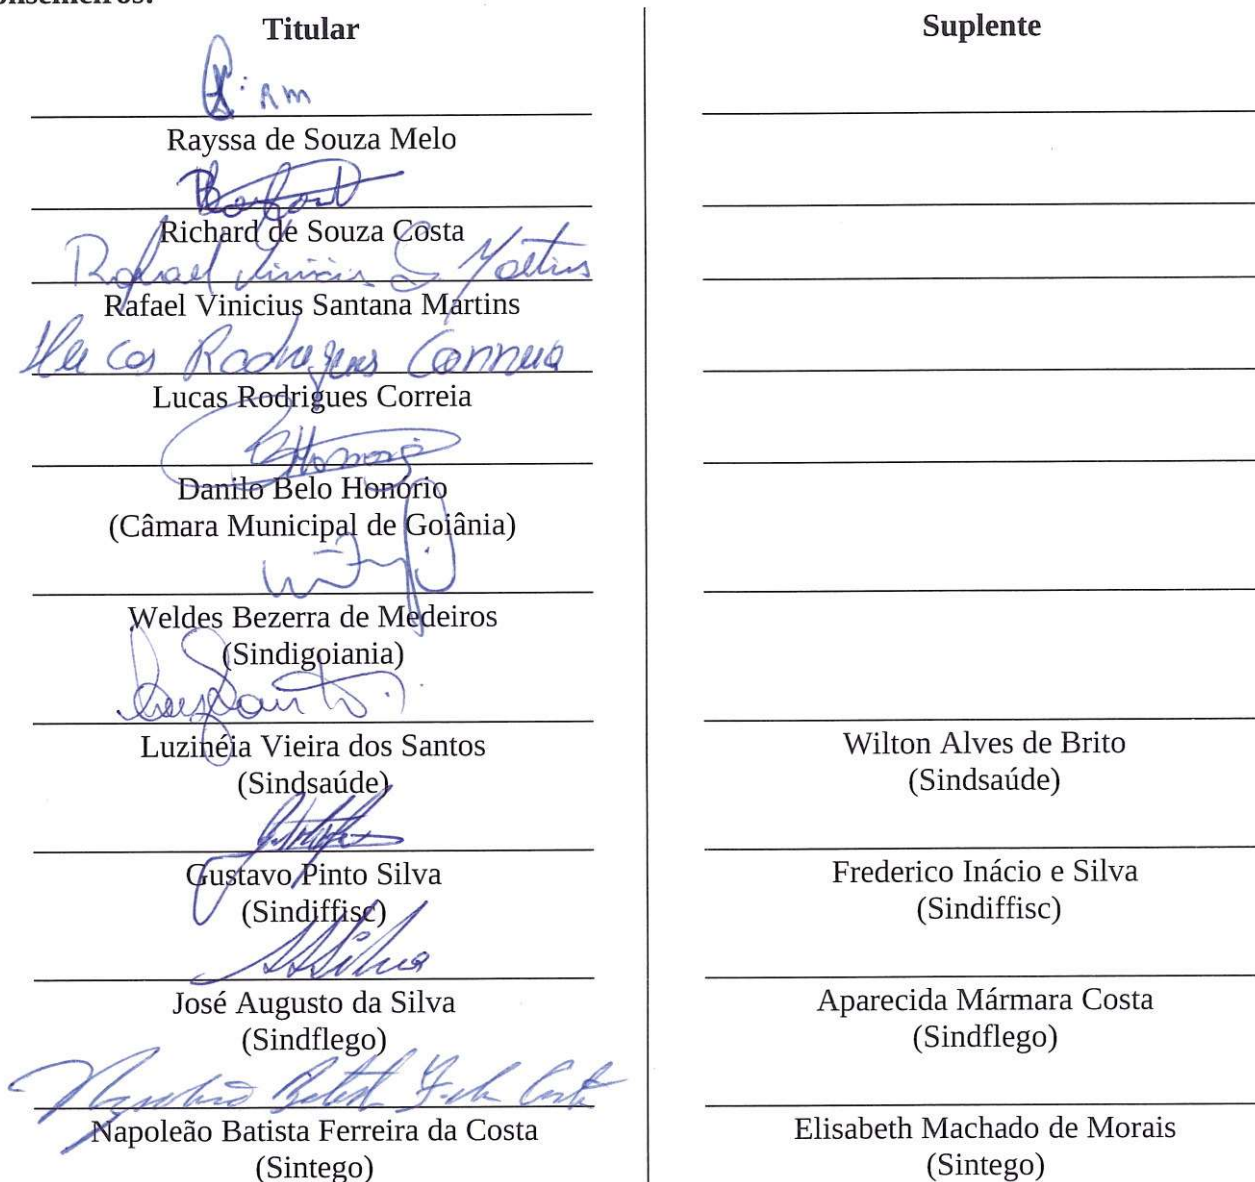 Titular
Rayssa de Souza Melo
Richard de Souza Costa
Rafael Vinicius S Martins
Rafael Vinicius Santana Martins
Lucas Rodrigues Correia
Lucas Rodrigues Correia
Danilo Belo Honório
(Câmara Municipal de Goiânia)
Weldes Bezerra de Medeiros
(Sindigoiania)
Luzinéia Vieira dos Santos
(Sindsaúde)
Gustavo Pinto Silva
(Sindiffisc)
José Augusto da Silva
(Sindflego)
Napoleão Batista Ferreira da Costa
(Sintego)
Suplente
Wilton Alves de Brito
(Sindsaúde)
Frederico Inácio e Silva
(Sindiffisc)
Aparecida Mármara Costa
(Sindflego)
Elisabeth Machado de Morais
(Sintego)